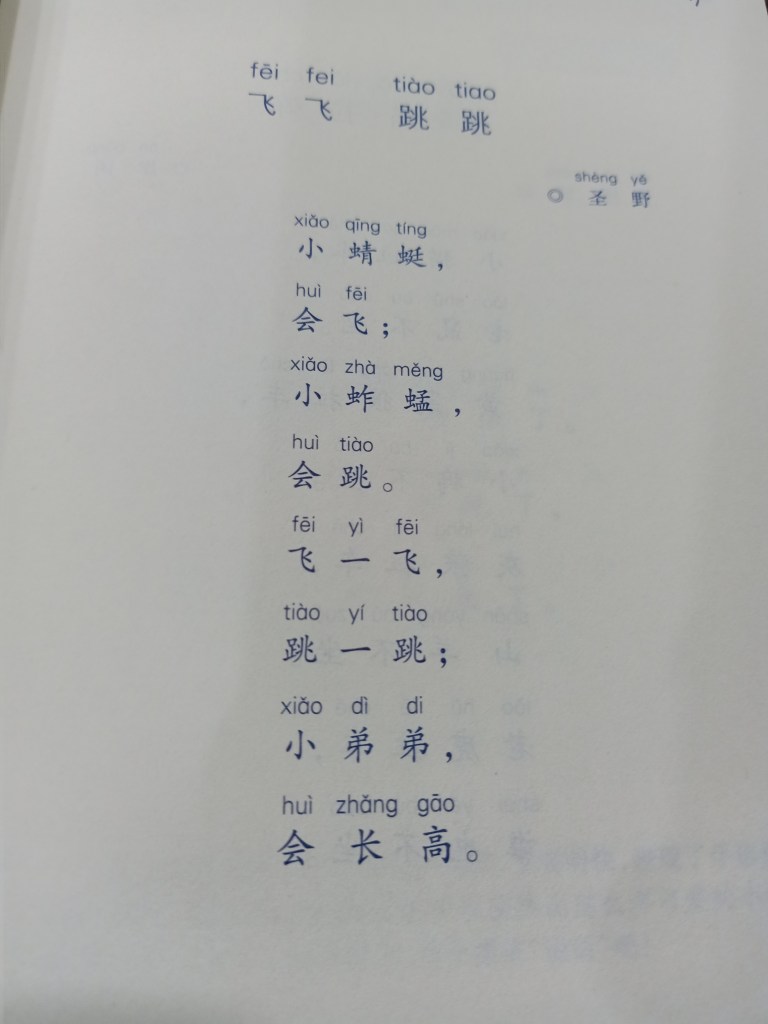 fēi fei tiào tiao
飞飞 跳跳
shèng yě
◎ 圣野
xiǎo qīng tíng
小蜻蜓，
huì fēi
会飞；
xiǎo zhà měng
小蚱蜢，
huì tiào
会跳。
fēi yì fēi
飞一飞，
tiào yí tiào
跳一跳；
xiǎo dì di
小弟弟，
huì zhǎng gāo
会长高。